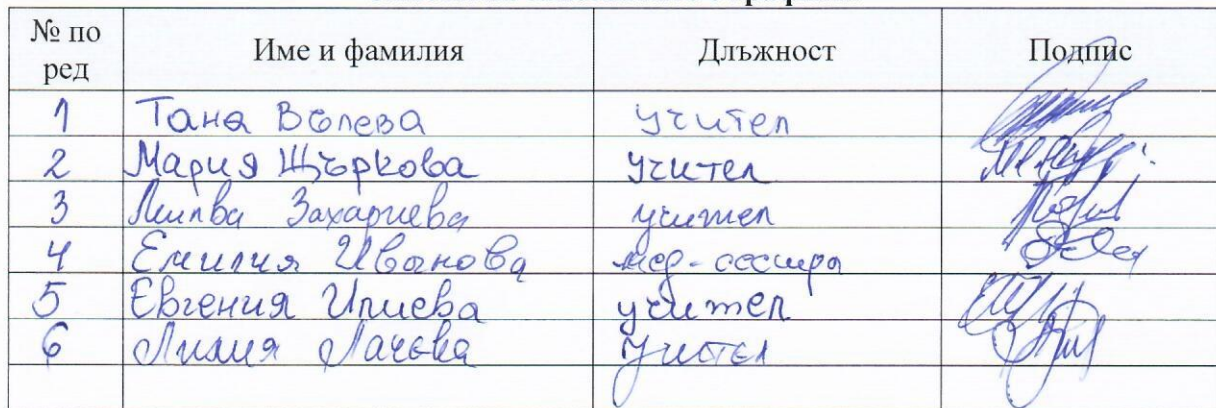 № по ред Име и фамилия Длъжност Подпис
1 Таня Вълева учител
2 Мария Щъркова учител
3 Захариева учител
4 Емилия Иванова мед. сестра
5 Евгения Илиева учител
6 Лилия Лачева учител